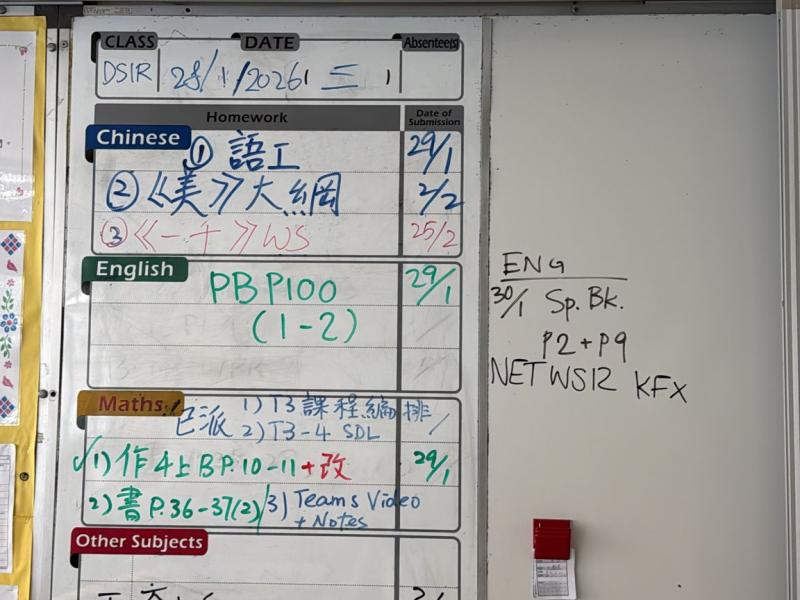 CLASS DATE Absentee(s)
DSIR 28/1/2026 三
Homework Date of Submission
Chinese
① 語工 29/1
② 《美》大綱 2/2
③ 《一千》WS 25/2
English
PB P100 29/1
(1-2)
Maths
已派 1) T3 課程編排 /
2) T3-4 SDL
✓1) 作 4上B P.10-11 + 改 29/1
2) 書 P.36-37(2) 3) Teams Video
+ Notes
Other Subjects
ENG
30/1 Sp. Bk.
P2 + P9
NETWS12 KFX